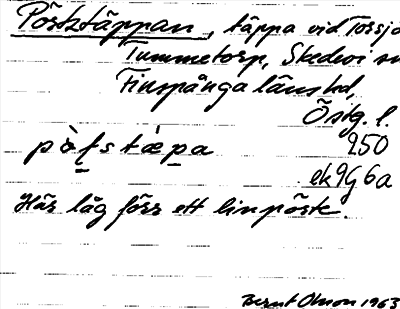 Pöstktäppan, täppa vid Torsjö
Tummetorp, Skedevi sn
Finspånga länstd,
Östg. l.
pò̱fstæpa 250
ek 9g 6a
Här låg förr ett linpöste.
Bernt Olsson 1963